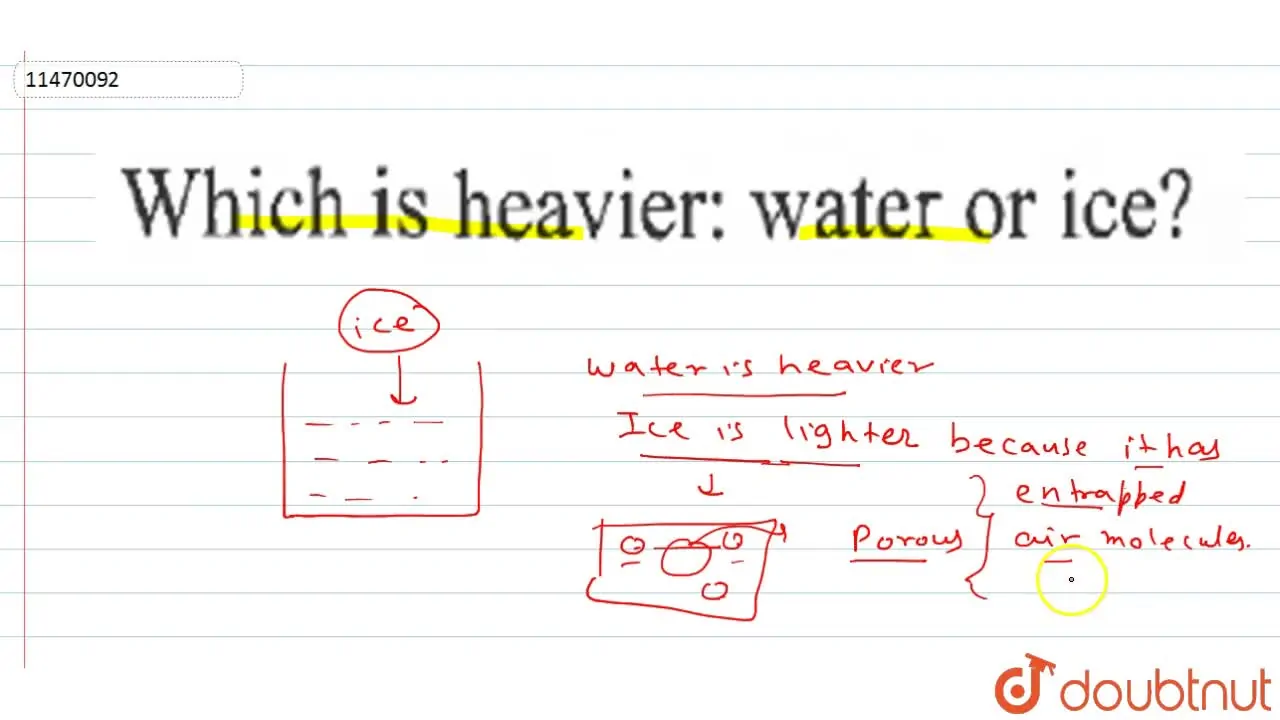 11470092
Which is heavier: water or ice?
ice
water is heavier
Ice is lighter because it has
entrapped
Porous air molecules.
doubtnut